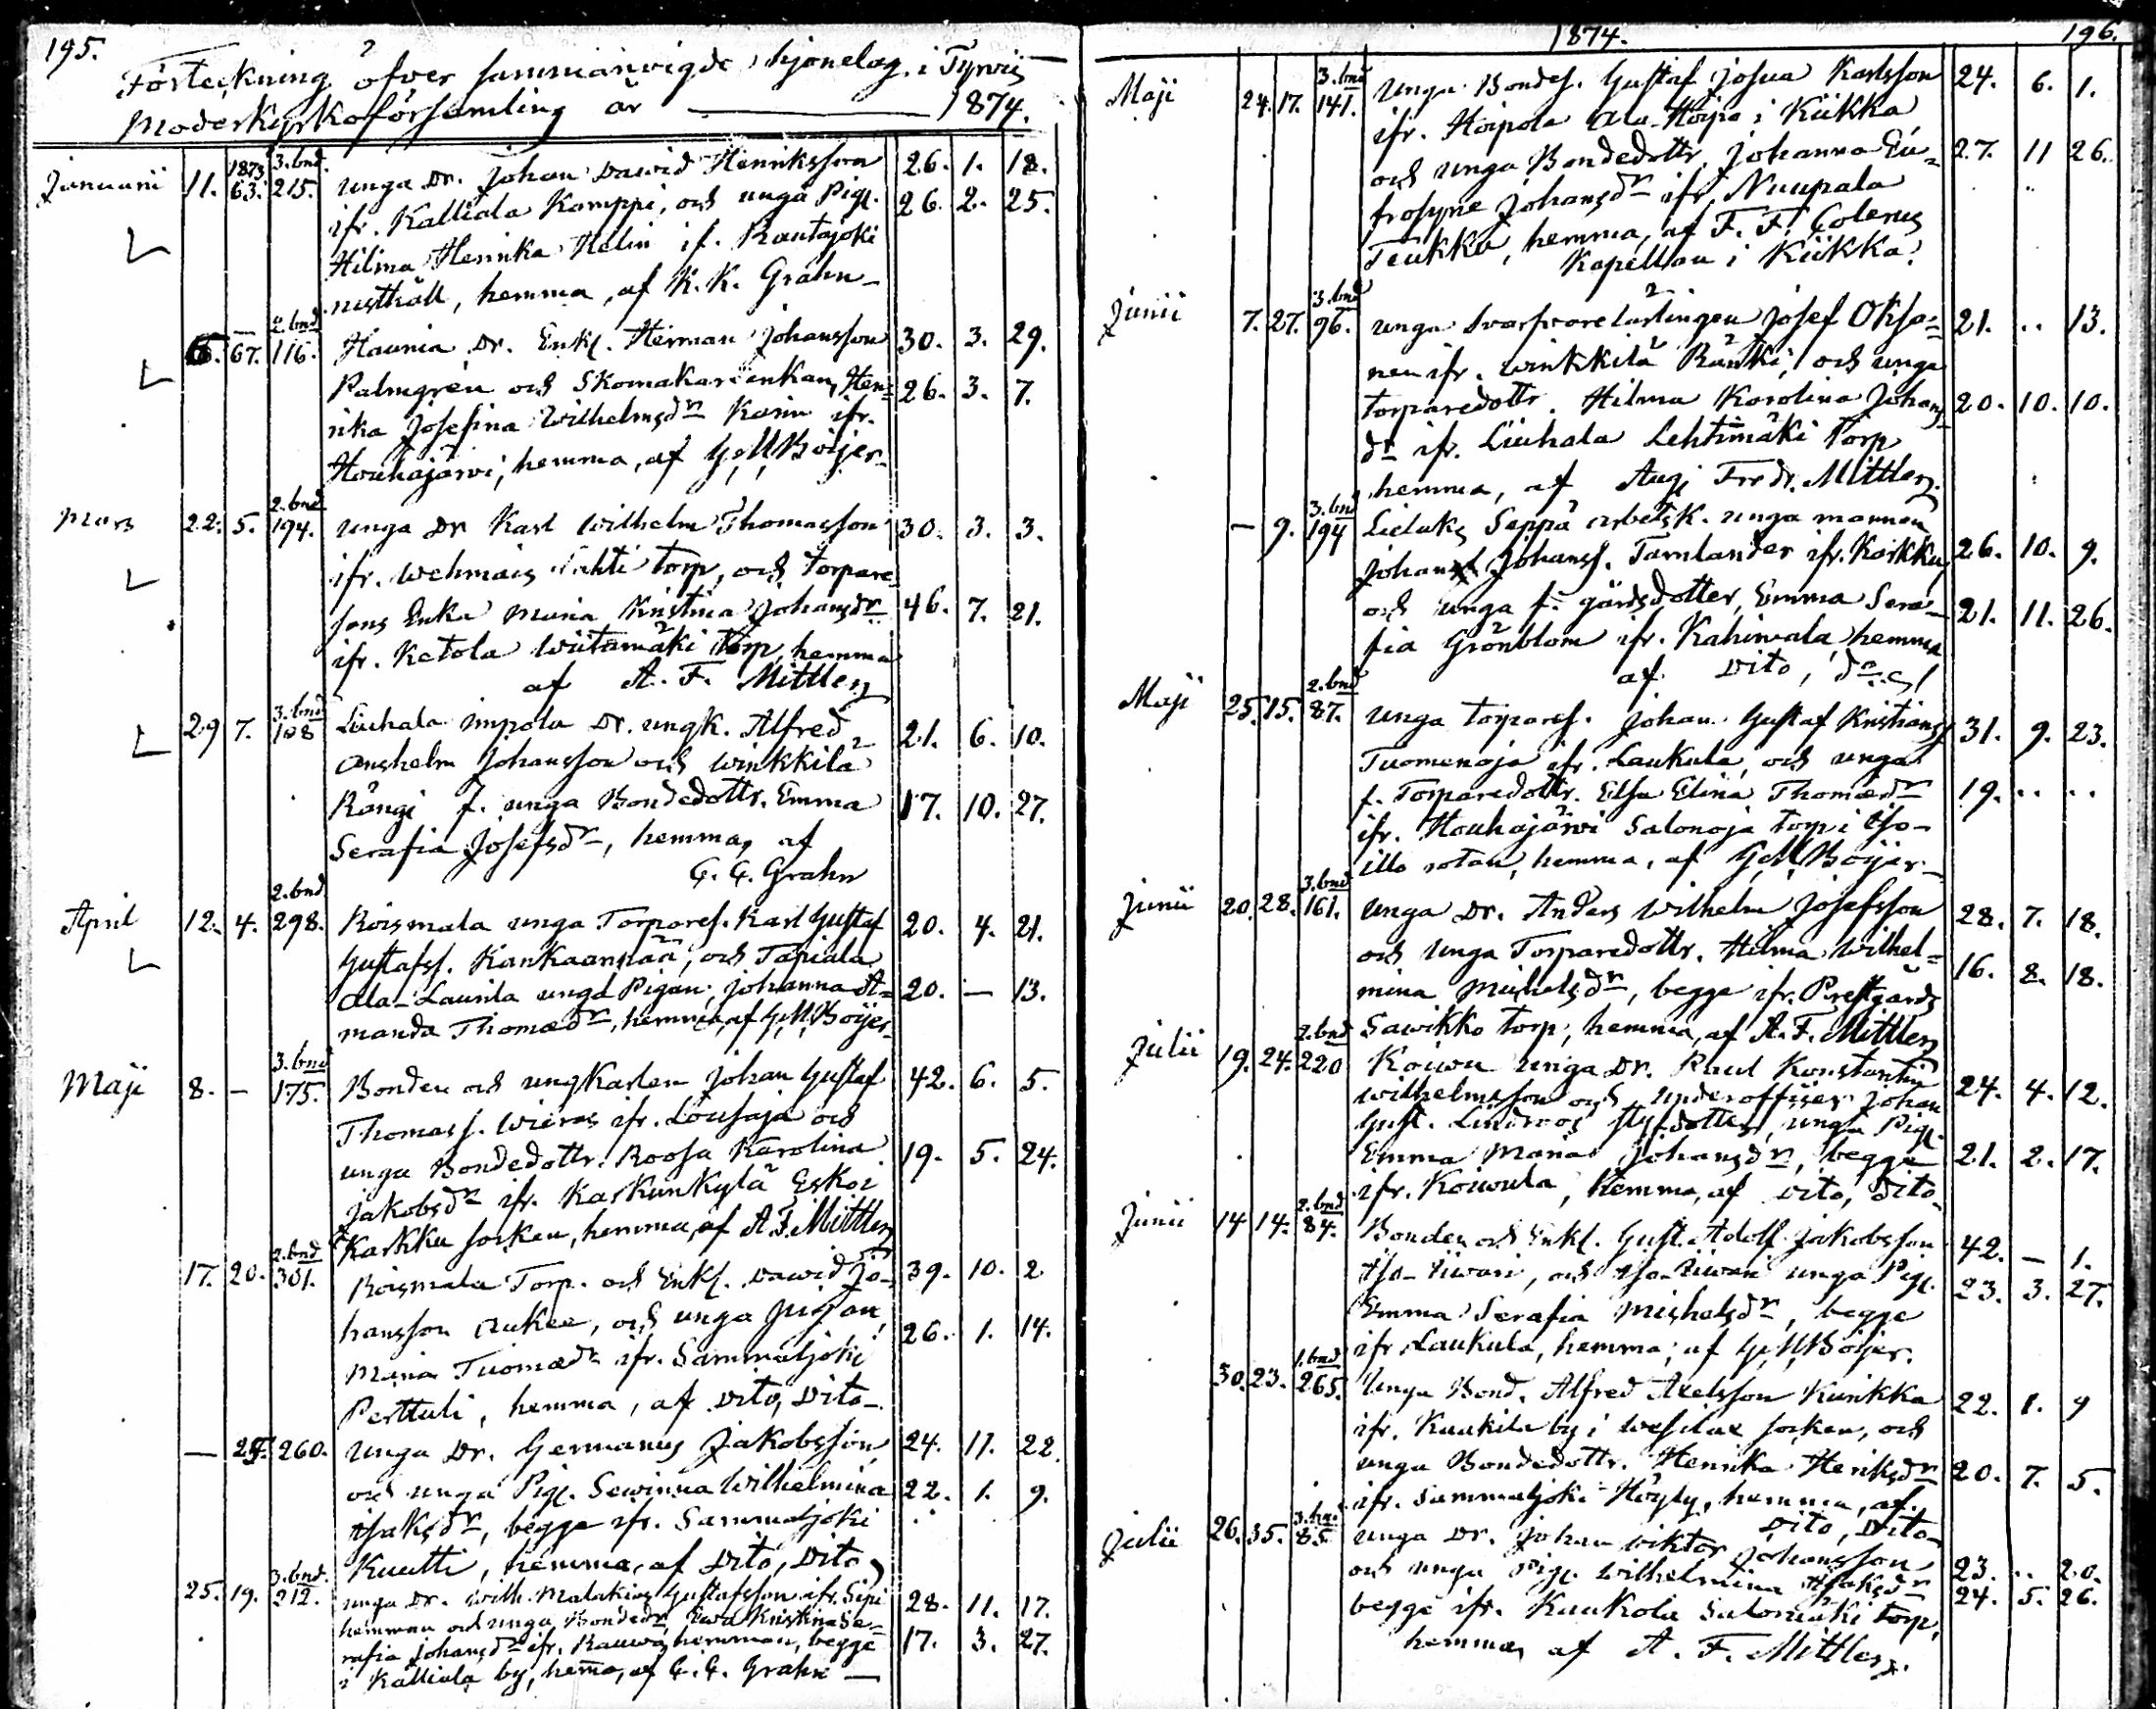 195.
Förteckning öfver sammanvigde hjonelag i Tyrvis
Moderkyrkoförsamling år — 1874.
1873 3. bnd.
Januarii 11. 63. 215. unga Dr. Johan David Henriksson 26. 1. 18.
ifr. Kalliala Kamppi, och unga Pig. 26. 2. 25.
Hilma Henrika Helin if. Rautajoki
nusthåll, hemma, af K. K. Grahn
2. bnd
6. 67. 116. Haunia Dr. Enkl. Herman Johansson 30. 3. 29.
Palmgren och Skomakareenkan, Hen= 26. 3. 7.
rika Josefina Wilhelmsdr Karin ifr.
Houhajärvi, hemma, af G. M. Böijer
2. bnd
Mars 22. 5. 194. unga Dr Karl Wilhelm Thomasson 30. 3. 3.
ifr. Wehmais Lahti torp, och torpare
sons Enka Maria Kristina Johansdr 46. 7. 21.
ifr. Ketola Wiitamäki torp, hemma
af A. F. Mittler
3. bnd
29 7. 108 Liuhala Impola Dr. ungk. Alfred 21. 6. 10.
Anshelm Johansson och Winkkilä
Rängi f. unga Bondedottr. Emma 17. 10. 27.
Serafia Josefsdr, hemma, af
G. G. Grahn
2. bnd
April 12. 4. 298. Roismala unga Torpares. Karl Gustaf 20. 4. 21.
Gustafss. Kankaanpää, och Tapiala
Ala-Laurila unga Pigan, Johanna A= 20. — 13.
manda Thomædr, hemma, af G. M. Böijer
3. bnd
Maji 8. — 175. Bonden och ungkarlen Johan Gustaf 42. 6. 5.
Thomass. Wieras ifr. Lousaja och
unga Bondedottr. Roosa Karolina 19. 5. 24.
Jakobsdr ifr. Karkunkylä Eskoi
Karkku socken, hemma, af A. F. Mittler
2. bnd
17. 20. 301. Roismala Torp. och Enkl. David Jo= 39. 10. 2
hansson Aukee, och unga pigan, 26. 1. 14.
Maria Tuomædr ifr. Sammaljoki
Perttuli, hemma, af Dito, Dito
— 25. 260. unga Dr. Germanus Jakobsson 24. 11. 22.
och unga Pig. Sewinna Wilhelmina 22. 1. 9.
Isaksdr, begge ifr. Sammaljoki
Kuutti, hemma, af Dito, Dito
3. bnd.
25. 19. 212. unga Dr. Wilh. Malakias Gustafsson ifr. Sipi 28. 11. 17.
hemman och unga Bondedr, Ewa Kristina Se=
rafia Johansdr ifr. Rauwa hemman, begge 17. 3. 27.
i Kalliala by, hemma, af G. G. Grahn —
1874. 196.
3. bnd
Maji 24. 17. 141. Unga Bondes. Gustaf Josua Karlsson 24. 6. 1.
ifr. Hoipola Ala-Hoipo i Kiikka
och unga Bondedottr, Johanna Eu= 27. 11 26.
frosyne Johansdr ifr. Nuupala
Teukku, hemma, af F. F. Colerus
Kapellan i Kiikka.
3. bnd
Junii 7. 27. 96. unga Svarfvarelärlingen Josef Oksa= 21. .. 13.
nen ifr. Winkkilä Ränki, och unga
torparedottr. Hilma Karolina Johans 20. 10. 10.
dr ifr. Liuhala Lehtimäki Torp
hemma, af Aug. Fredr. Mittler
3. bnd
— 9. 194 Liuhala Seppä arbetsk. unga mannen
Johan Johanss. Tarnlander ifr. Karkku, 26. 10. 9.
och unga f. gårdsdotter, Emma Sera= 21. 11. 26.
fia Grönblom ifr. Kahimala, hemma
af Dito, d:o
2. bnd
Maji 25. 15. 87. unga torpares. Johan Gustaf Kristianss 31. 9. 23.
Tuomenoja ifr. Laukula, och unga
f. Torparedottr. Elsa Elina Thomædr 19. .. ..
ifr. Houhajärvi Salonoja torp i Iso-
illo rotan, hemma, af G. M. Böijer
3. bnd
Junii 20. 28. 161. Unga Dr. Anders Wilhelm Josefsson 28. 7. 18.
och unga Torparedottr. Hilma Wilhel= 16. 8. 18.
mina Michelsdr, begge ifr. Prestgårds
Sawikko torp, hemma, af A. F. Mittler
2. bnd
Julii 19. 24. 220 Koiwu unga Dr. Paul Konstantin 24. 4. 12.
Wilhelmsson och Underofficer Johan
Gust. Lindroos styfdotter, unga Pig.
Emma Maria Johansdr, begge 21. 2. 17.
ifr. Koiwula, hemma, af Dito, Dito
2. bnd
Junii 14 14. 84. Bonden och Enkl. Gust. Adolf Jakobsson 42. — 1.
Iso-Iiwari, och Iso-Iiwari unga Pig. 23. 3. 27.
Emma Serafia Michelsdr, begge
ifr. Laukula, hemma, af G. M. Böijer.
1. bnd
30. 23. 265. Unga Bond. Alfred Axelsson Kurikka 22. 1. 9
ifr. Kuukila by i Wesilax socken, och
unga Bondedottr. Henrika Henriksdr 20. 7. 5.
ifr. Sammaljoki Höyly, hemma, af
Dito, Dito
3. bnd
Julii 26. 35. 85 unga Dr. Johan Wiktor Johansson 23. .. 20.
och unga Pig. Wilhelmina Isaksdr 24. 5. 26.
begge ifr. Kaukola Salomäki torp,
hemma, af A. F. Mittler